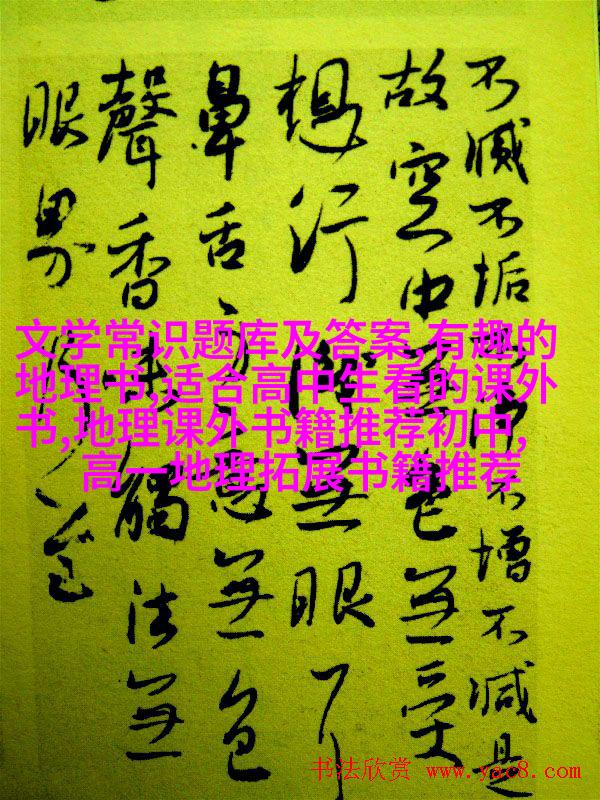 不滅不垢不淨不增不減是
故空中無色無受
想行識無眼耳
鼻舌身意無色
聲香味觸法無
眼界
文学常识题库及答案,有趣的
地理书,适合高中生看的课外
书,地理课外书籍推荐初中,
高一地理拓展书籍推荐
书法欣赏 www.yac8.com